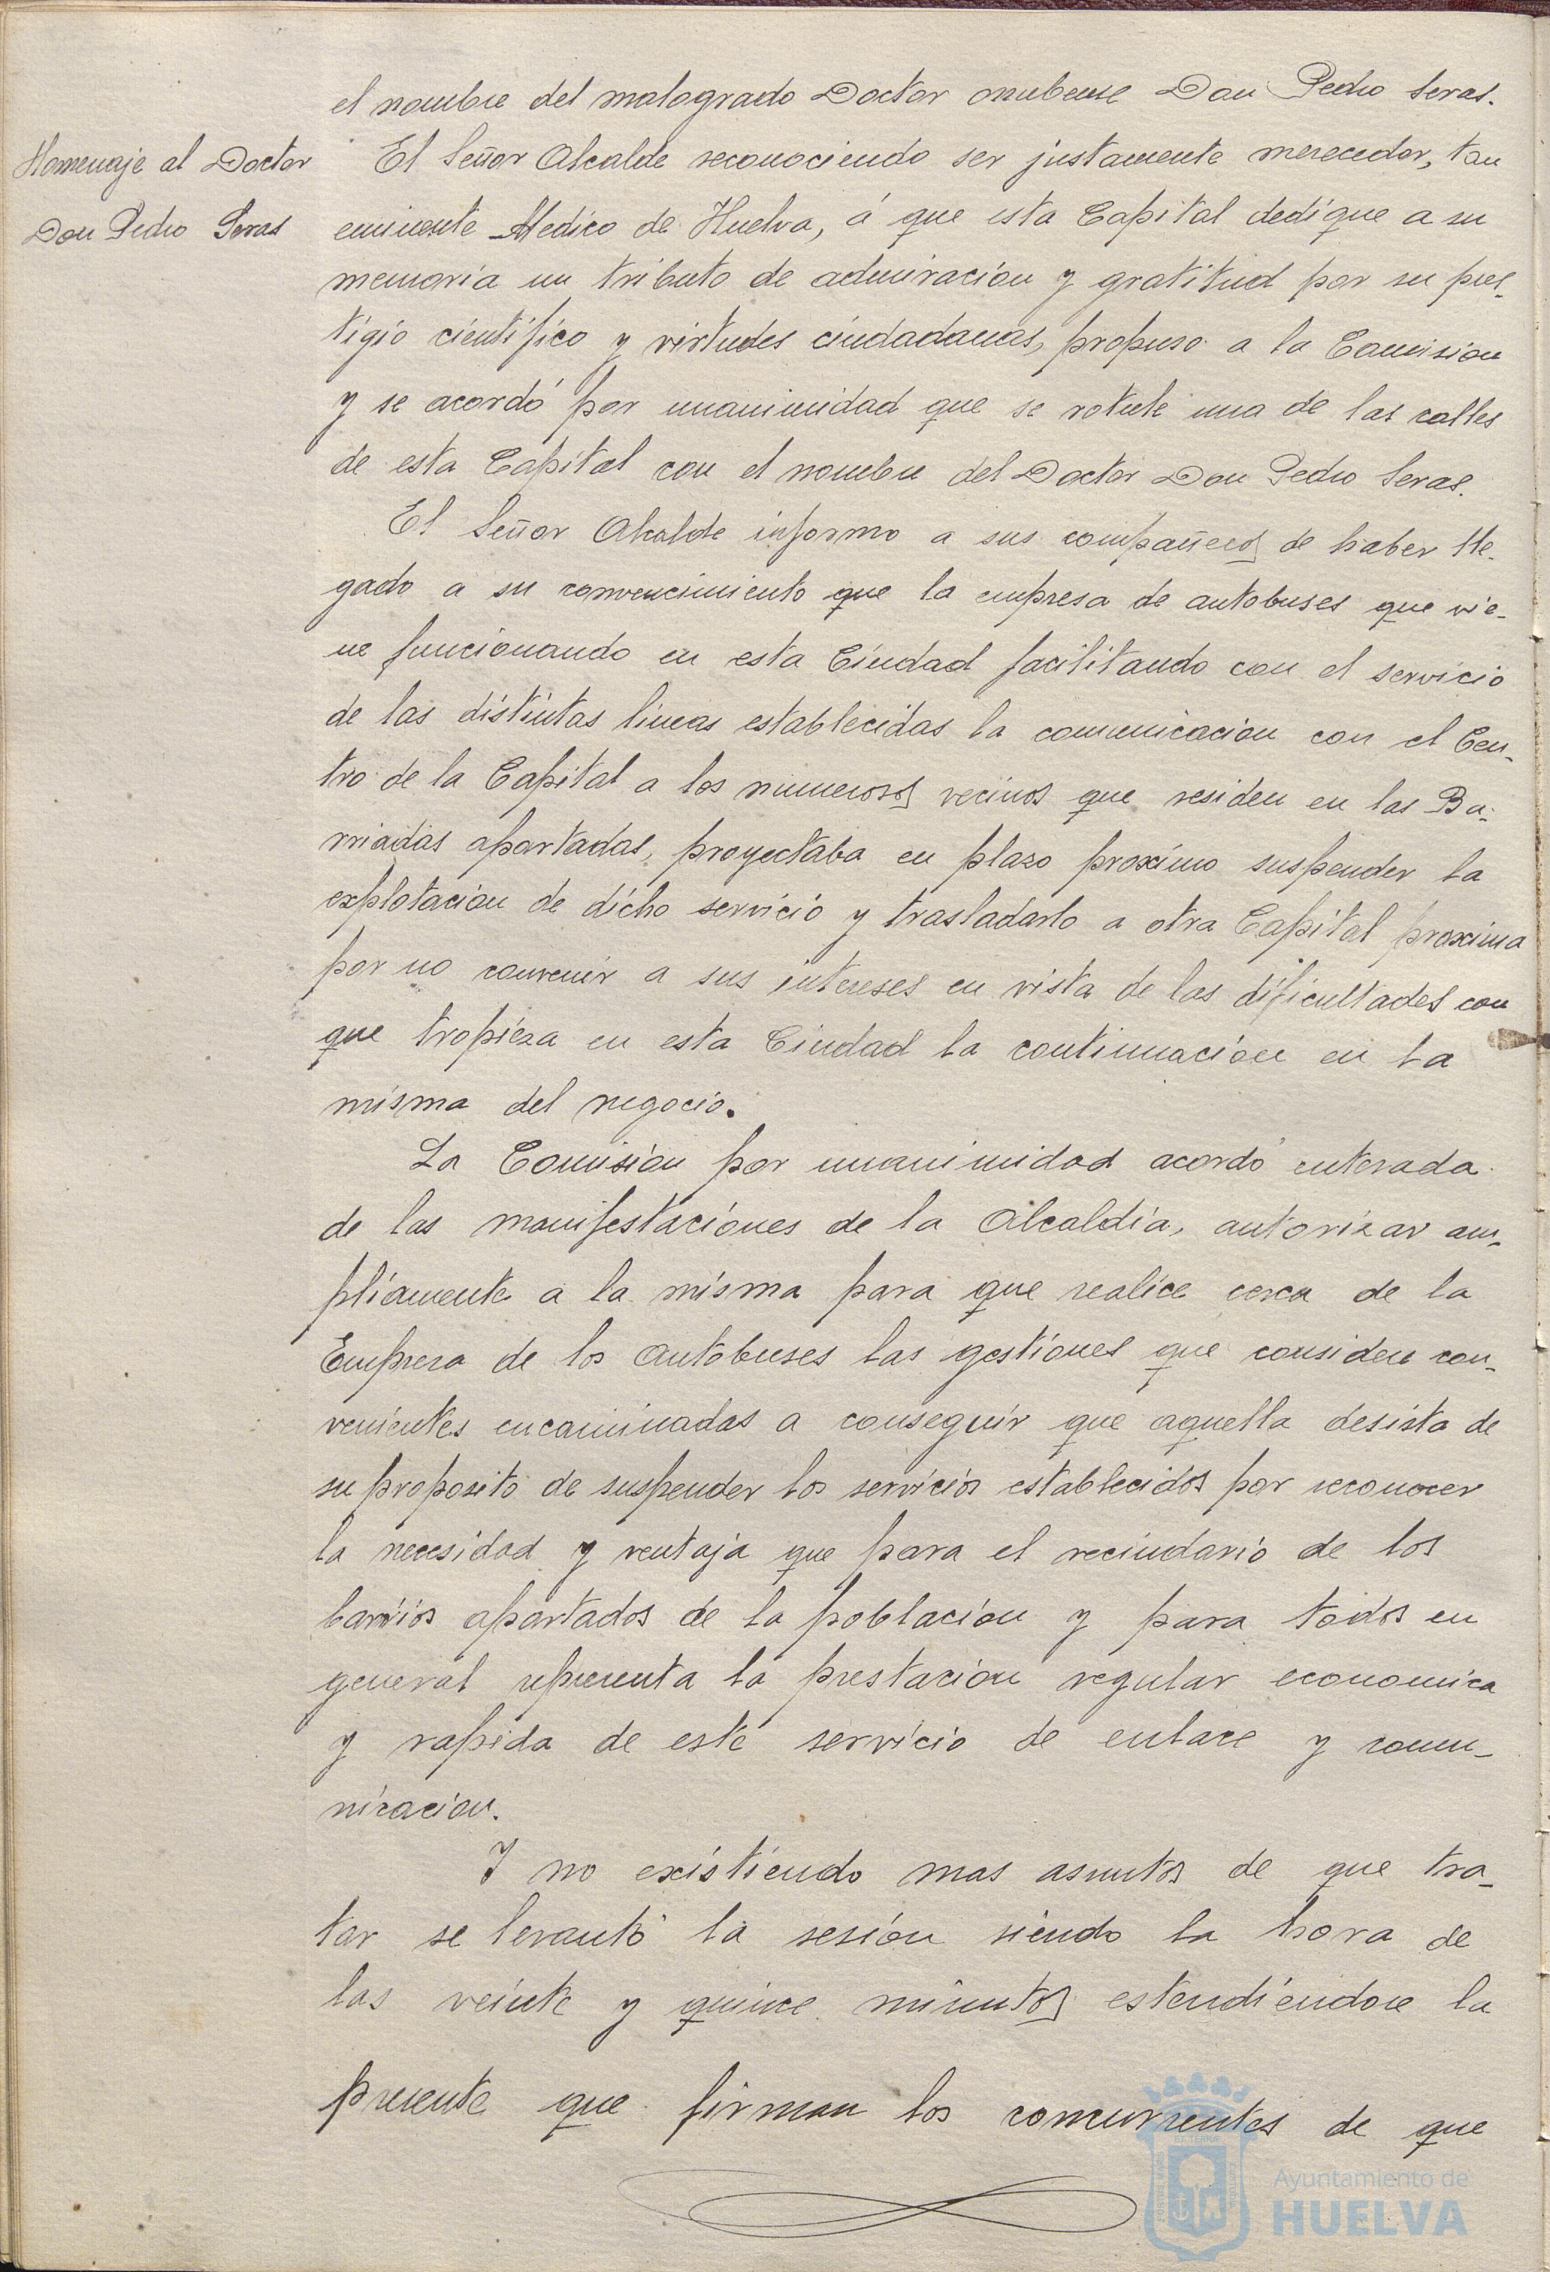 el nombre del malogrado Doctor onubense Don Pedro Seras.
Homenaje al Doctor
Don Pedro Seras
El Señor Alcalde reconociendo ser justamente merecedor, tan
eminente Medico de Huelva, á que esta Capital dedíque a su
memoria un tributo de admiración y gratitud por su pres-
tigio científico y virtudes ciudadanas, propuso a la Comision
y se acordó por unanimidad que se rotule una de las calles
de esta Capital con el nombre del Doctor Don Pedro Seras.
El Señor Alcalde informo a sus compañeros de haber lle-
gado a su convencimiento que la empresa de autobuses que vie-
ne funcionando en esta Ciudad facilitando con el servicio
de las distintas lineas establecidas la comunicacion con el Cen-
tro de la Capital a los numerosos vecinos que residen en las Ba-
rriadas apartadas, proyectaba en plazo proximo suspender la
explotacion de dicho servicio y trasladarlo a otra Capital proxima
por no convenir a sus intereses en vista de las dificultades con
que tropieza en esta Ciudad la continuacion en la
misma del negocio.
La Comision por unanimidad acordó enterada
de las manifestaciones de la Alcaldia, autorizar am-
pliamente a la misma para que realice cerca de la
Empresa de los Autobuses las gestiones que considere con-
venientes encaminadas a conseguir que aquella desista de
su proposito de suspender los servicios establecidos por reconocer
la necesidad y ventaja que para el vecindario de los
barrios apartados de la poblacion y para todos en
general representa la prestacion regular economica
y rapida de este servicio de enlace y comu-
nicacion.
Y no existiendo mas asuntos de que tra-
tar se levantó la sesión siendo la hora de
las veinte y quince minutos estendiéndose la
presente que firman los concurrentes de que
Ayuntamiento de
HUELVA